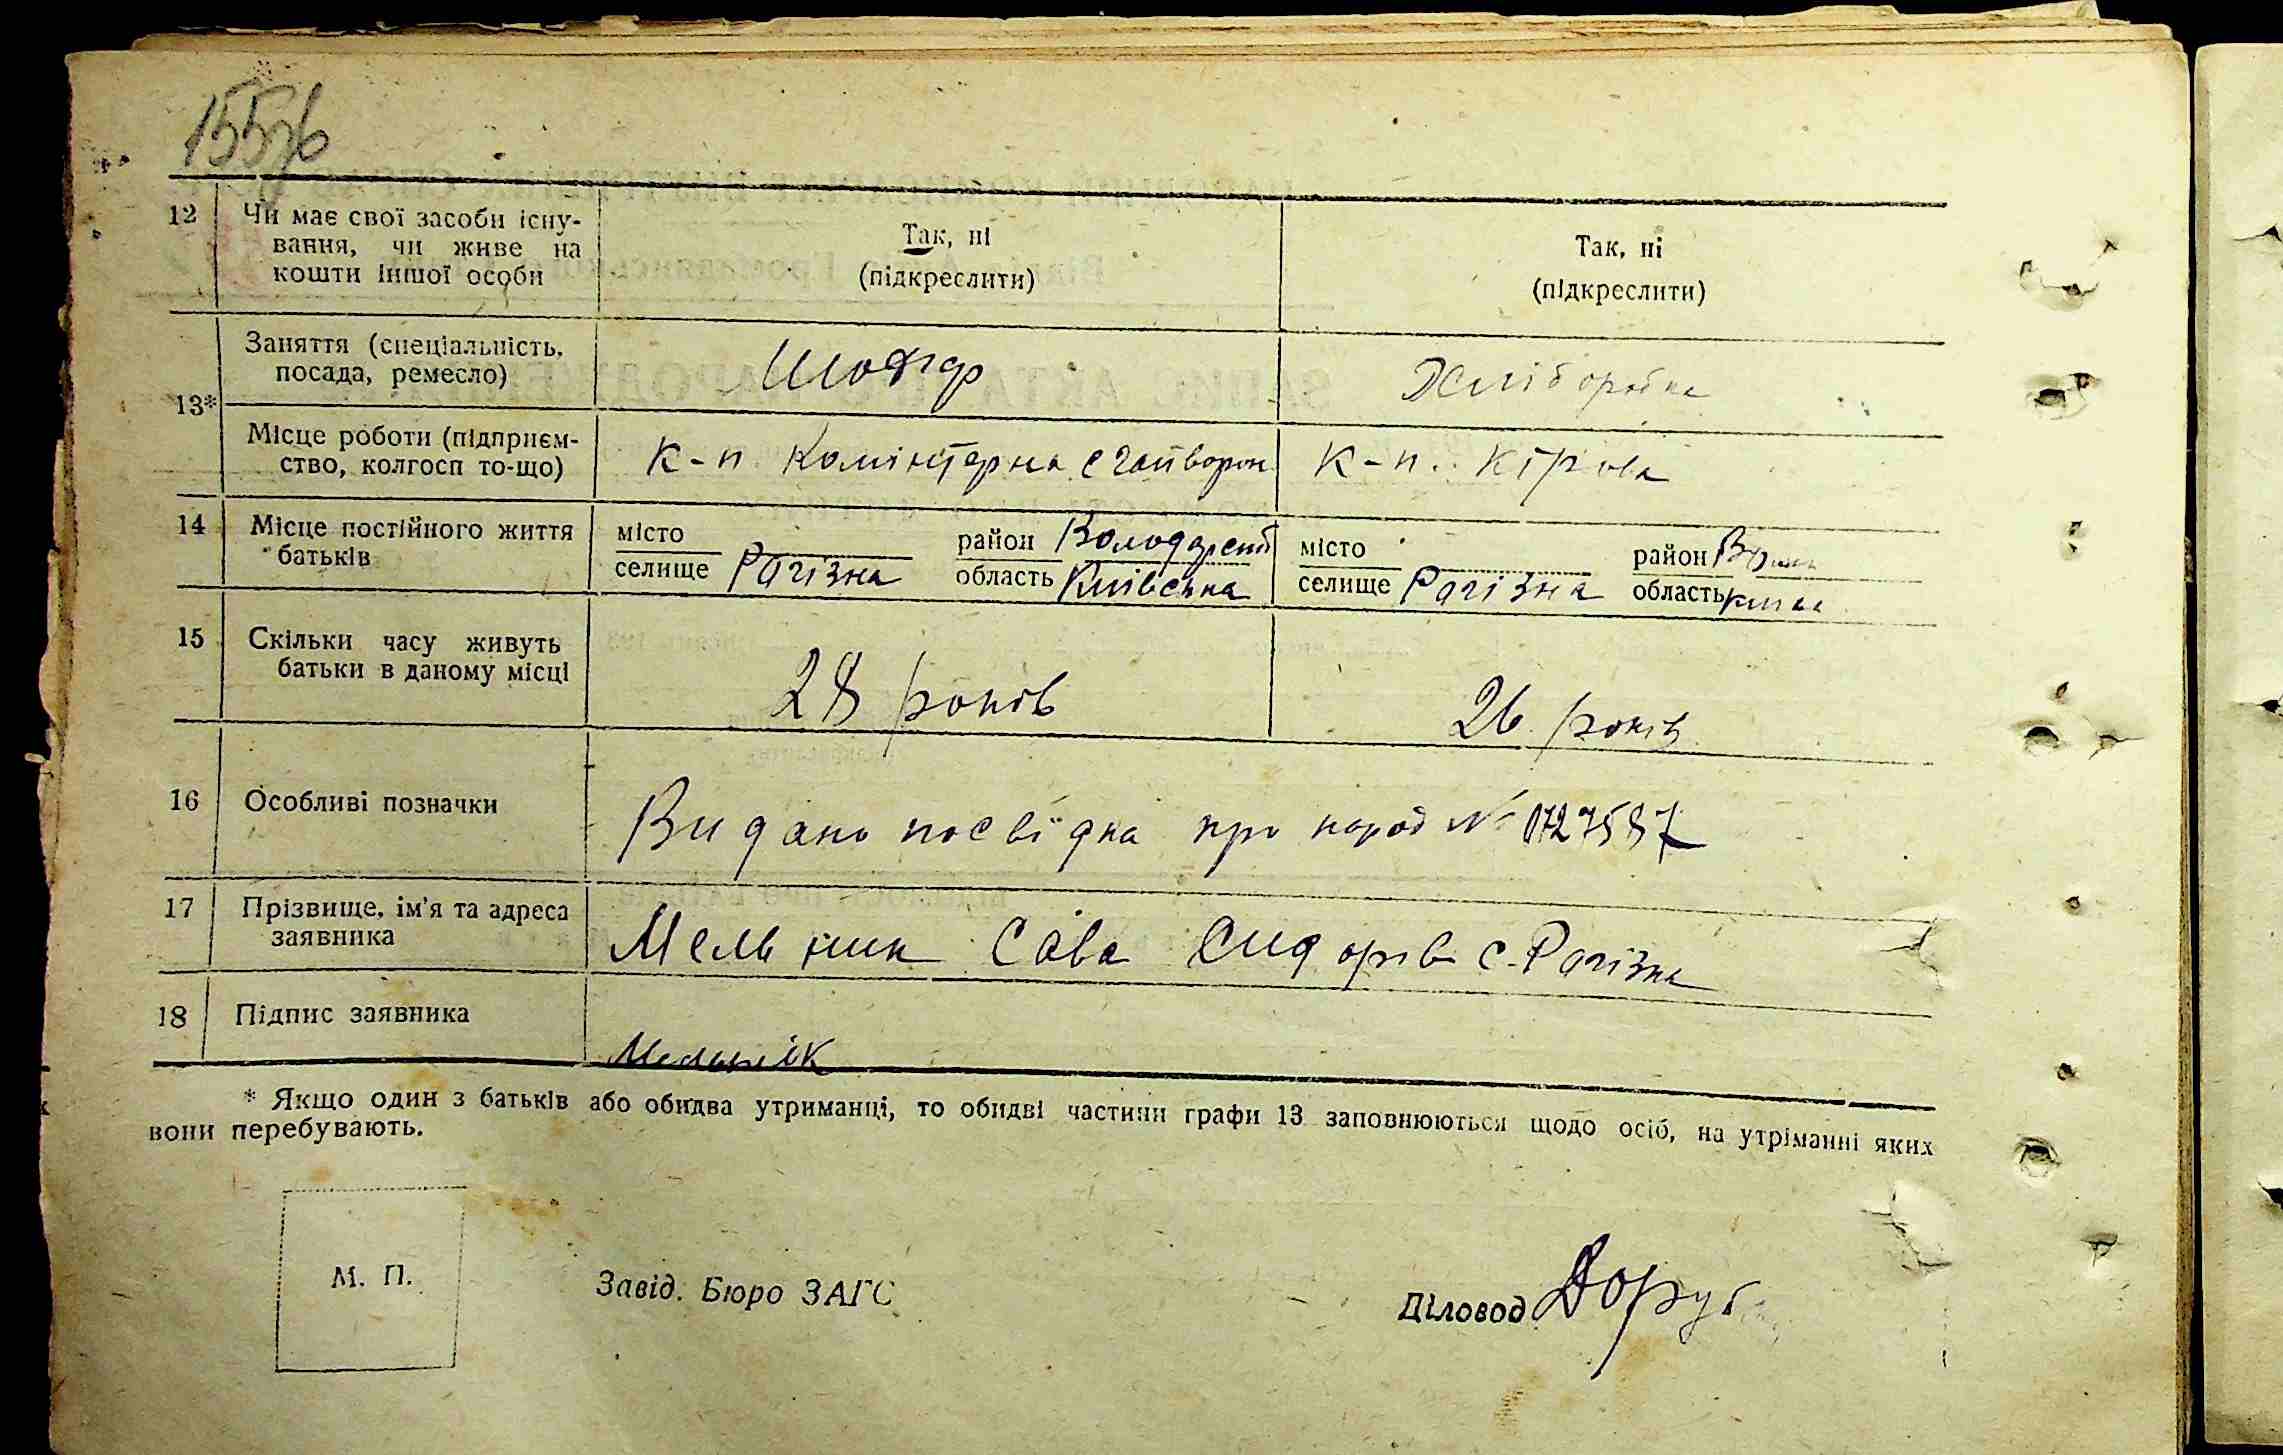 155зв
12 Чи має свої засоби існу-
вання, чи живе на
кошти іншої особи
Так, ні
(підкреслити)
Так, ні
(підкреслити)
13*
Заняття (спеціальність,
посада, ремесло)
Шофер
Хліборобка
Місце роботи (підприєм-
ство, колгосп то-що)
к-п Комінтерна с Гайворон
к-п. Кірова
14 Місце постійного життя
батьків
місто
селище Рогізна
район Володарський
область Київська
місто
селище Рогізна
район
область
15 Скільки часу живуть
батьки в даному місці
28 років
26 років
16 Особливі позначки
Видано посвідка про народ № 0727587
17 Прізвище, ім'я та адреса
заявника
Мельник Сава Сидорів с. Рогізна
18 Підпис заявника
Мельнік
* Якщо один з батьків або обидва утриманці, то обидві частини графи 13 заповнюються щодо осіб, на утріманні яких
вони перебувають.
М. П.
Завід. Бюро ЗАГС
Діловод